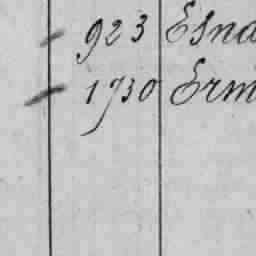 923 Esna
1730 Erm